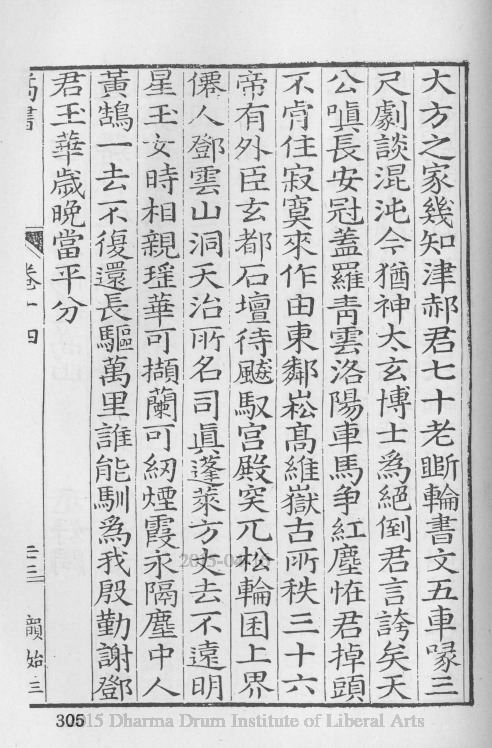 大方之家幾知津郝君七十老斲輪書文五車喙三
尺劇談混沌今猶神太玄博士為絕倒君言誇矣天
公嗔長安冠蓋羅青雲洛陽車馬争紅塵恠君掉頭
不肯住寂寞來作由東鄰崧高維嶽古所秩三十六
帝有外臣玄都石壇待飈馭宫殿突兀松輪囷上界
僊人鄧雲山洞天治所名司眞蓬萊方丈去不遠明
星玉女時相親瑤華可擷蘭可紉煙霞永隔塵中人
黃鵠一去不復還長驅萬里誰能馴為我殷勤謝鄧
君玉華歲晚當平分
卷十四
二三
韻始三
305
2015 Dharma Drum Institute of Liberal Arts